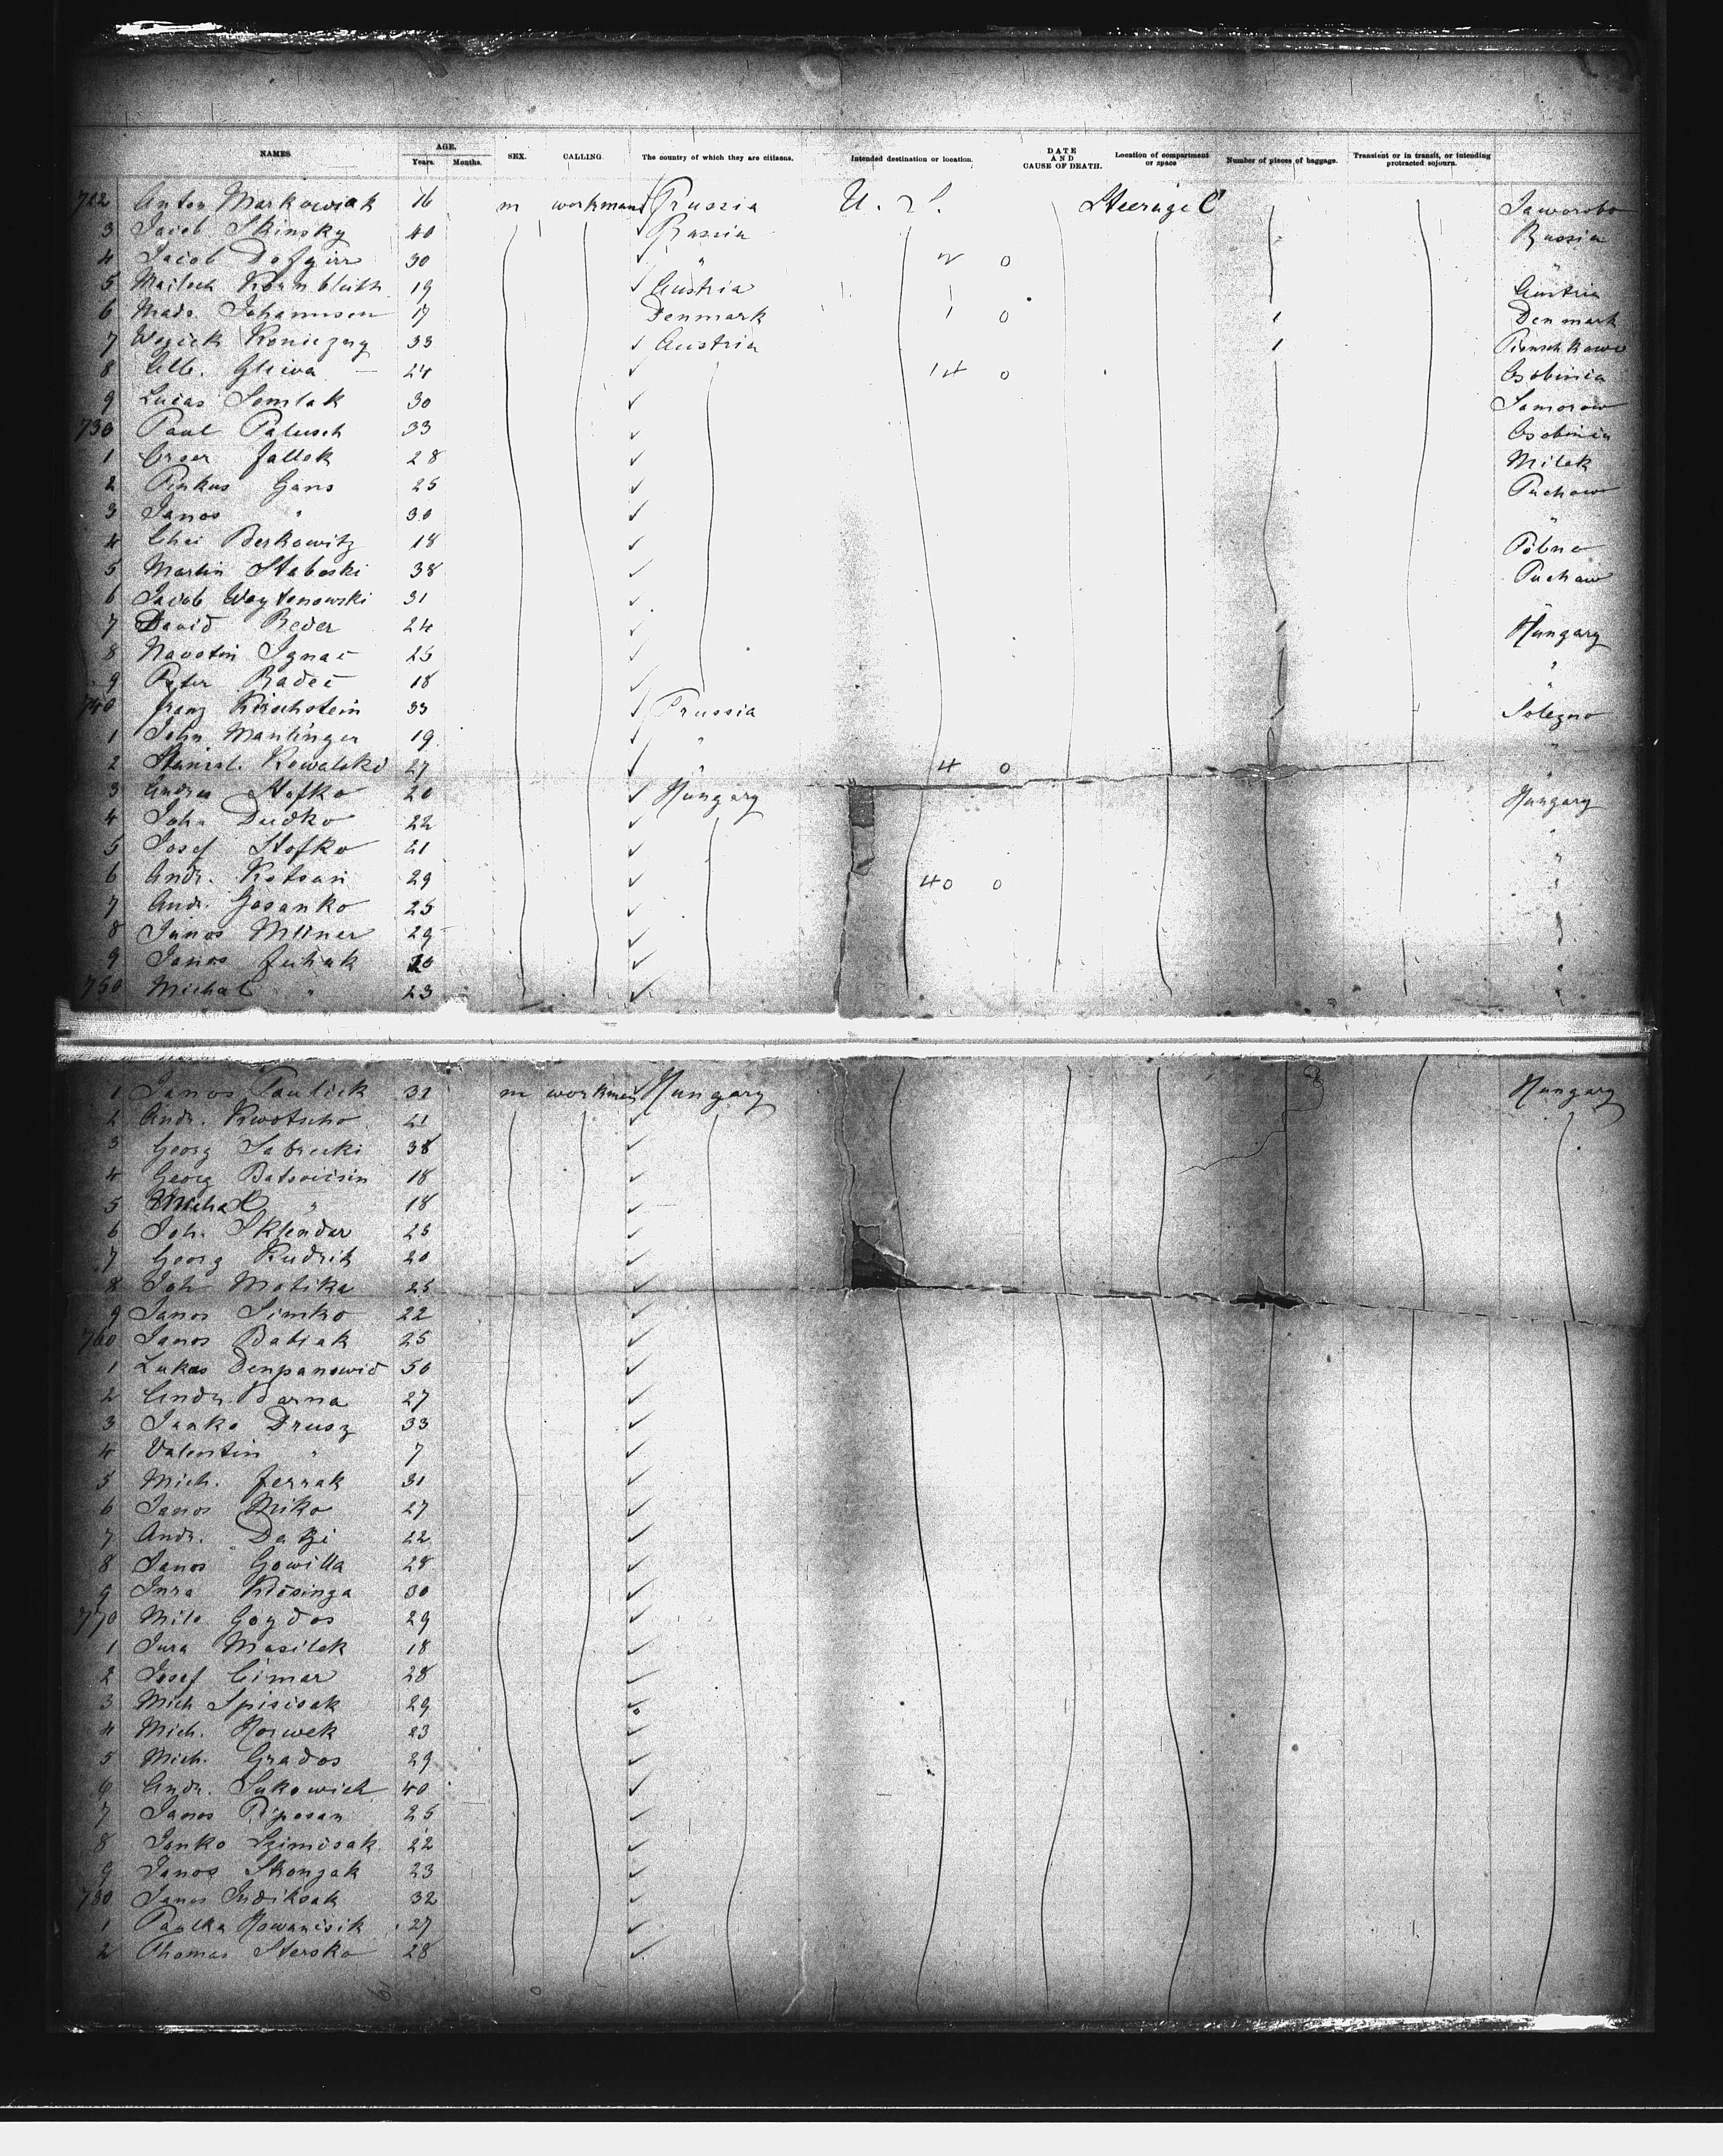 NAMES. AGE. Years. Months. SEX. CALLING. The country of which they are citizens. Intended destination or location. DATE AND CAUSE OF DEATH. Location of compartment or space Number of pieces of baggage. Transient or in transit, or intending protracted sojourn.
722 Anton Markowiak 16 m workman Prussia U. S. Steerage C
3 Jacob Skinsky 40 Russia Russia
4 Jacob 30 " 2 0 "
5 Kornblüth 19 Austria 1 Austria
6 Mads. Johannsen 17 Denmark 1 0 1 Denmark
7 33 Austria 1
8 Gliwa 24 14 0
9 Lucas Somlak 30
730 Paul Palusch 33
1 28 Milek
2 Pinkus Gans 25 Puchow
3 Janos " 30 "
4 Chai Berkowitz 18
5 Martin Staboski 38 Puchow
6 Jacob Woytonowski 31 "
7 David Reder 24 Hungary
8 Navotin Ignac 25 "
9 Peter Radec 18 "
740 Franz Kirschstein 33 Prussia
1 John Mantinger 19 " "
2 Stanisl. Kowalski 27 " 4 0 "
3 Andras Stofko 20 Hungary Hungary
4 Joh. Dudko 22 "
5 Josef Stofko 21 "
6 Andr. Kotsan 29 40 0 "
7 Andr. Gosanko 25
8 Janos Mliner 29
9 Janos Juhak 20
750 Michal " 23
1 Janos Paulick 32 m workman Hungary Hungary
2 Andr. Kwotscho 21
3 Georg 38
4 Georg 18
5 Michal " 18
6 Joh. Sklendar 25
7 Georg Kudrik 20
8 Joh Motika 25
9 Janos Simko 22
760 Janos Babiak 25
1 Lukas Denpanowid 50
2 Andr. Barna 27
3 Janko Drusz 33
4 Valentin " 7
5 Mich. Ferrak 31
6 Janos Miko 27
7 Andr. 22
8 Janos Gowilla 28
9 30
770 Mile Goydos 29
1 Jura Masilek 18
2 Josef Cimar 28
3 Mich Spisisak 29
4 Mich. Horwek 23
5 Mich. Grados 29
6 Andr. Sukowich 40
7 Janos Riposan 25
8 Janko Szimisak 22
9 Janos Skonzak 23
780 Janos Indiksak 32
1 Paulka Kowanisik 27
2 Thomas Stersko 28